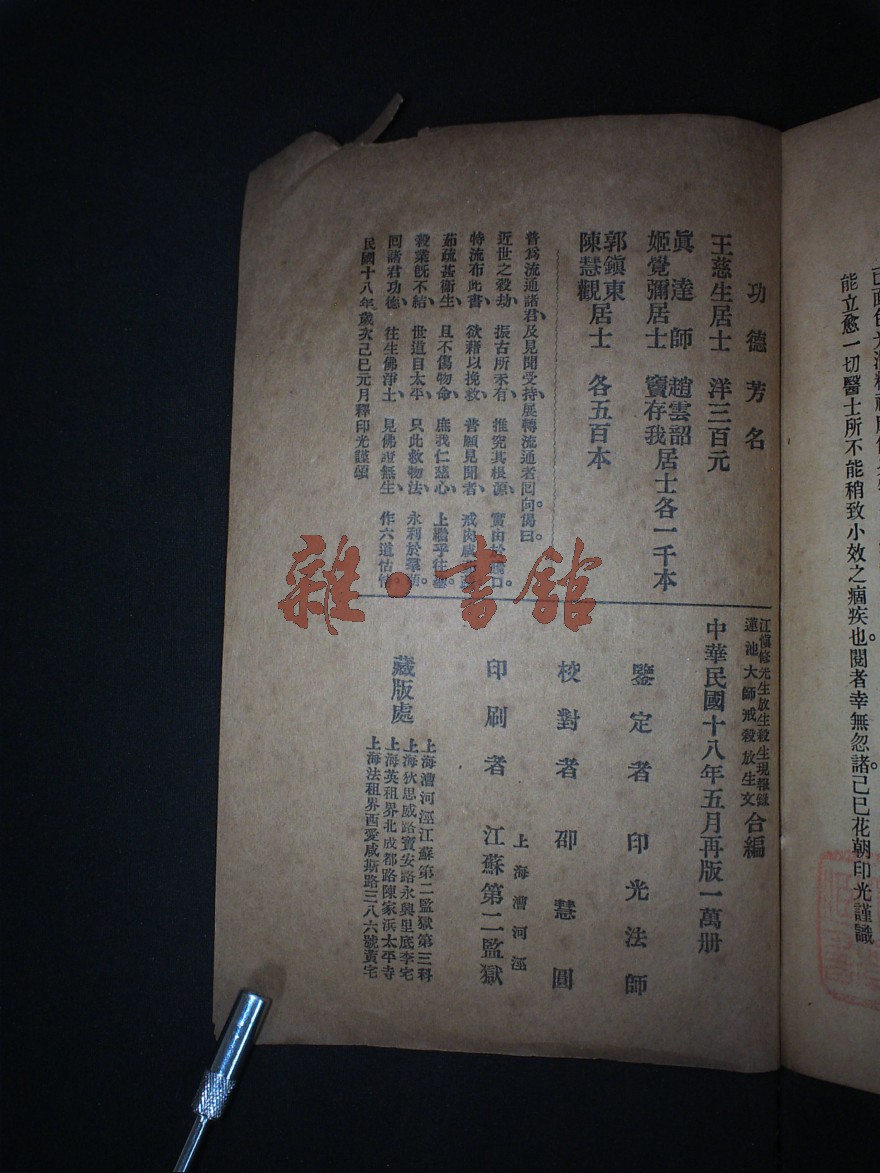 能立愈一切醫士所不能稍致小效之痼疾也。閱者幸無忽諸。己巳花朝印光謹識
功德芳名
王慈生居士 洋三百元
眞達師 趙雲韶
姬覺彌居士 竇存我居士各一千本
郭鎭東
陳慧觀居士 各五百本
普爲流通諸君、及見聞受持、展轉流通者囘向。偈曰。
近世之殺劫、 振古所未有、 推究其根源、 實由於 口。
特流布此書、 欲藉以挽救、 普願見聞者、 戒肉
茹疏甚衞生、 且不傷物命、 庶我仁慈心、 上繼乎往
殺業旣不結、 世道自太平、 只此救物法、 永利於
囘諸君功德、 往生佛淨土、 見佛證無生、 作六道怙
民國十八年歲次己巳元月釋印光謹頌
江愼修先生放生殺生現報錄
蓮池大師戒殺放生文 合編
中華民國十八年五月再版一萬册
鑒定者 印光法師
校對者 邵慧圓
上海漕河涇
印刷者 江蘇第二監獄
藏版處
上海漕河涇江蘇第二監獄第三科
上海狄思威路寶安路永興里底李宅
上海英租界北成都路陳家浜太平寺
上海法租界西愛咸斯路三八六號黃宅
雜·書館